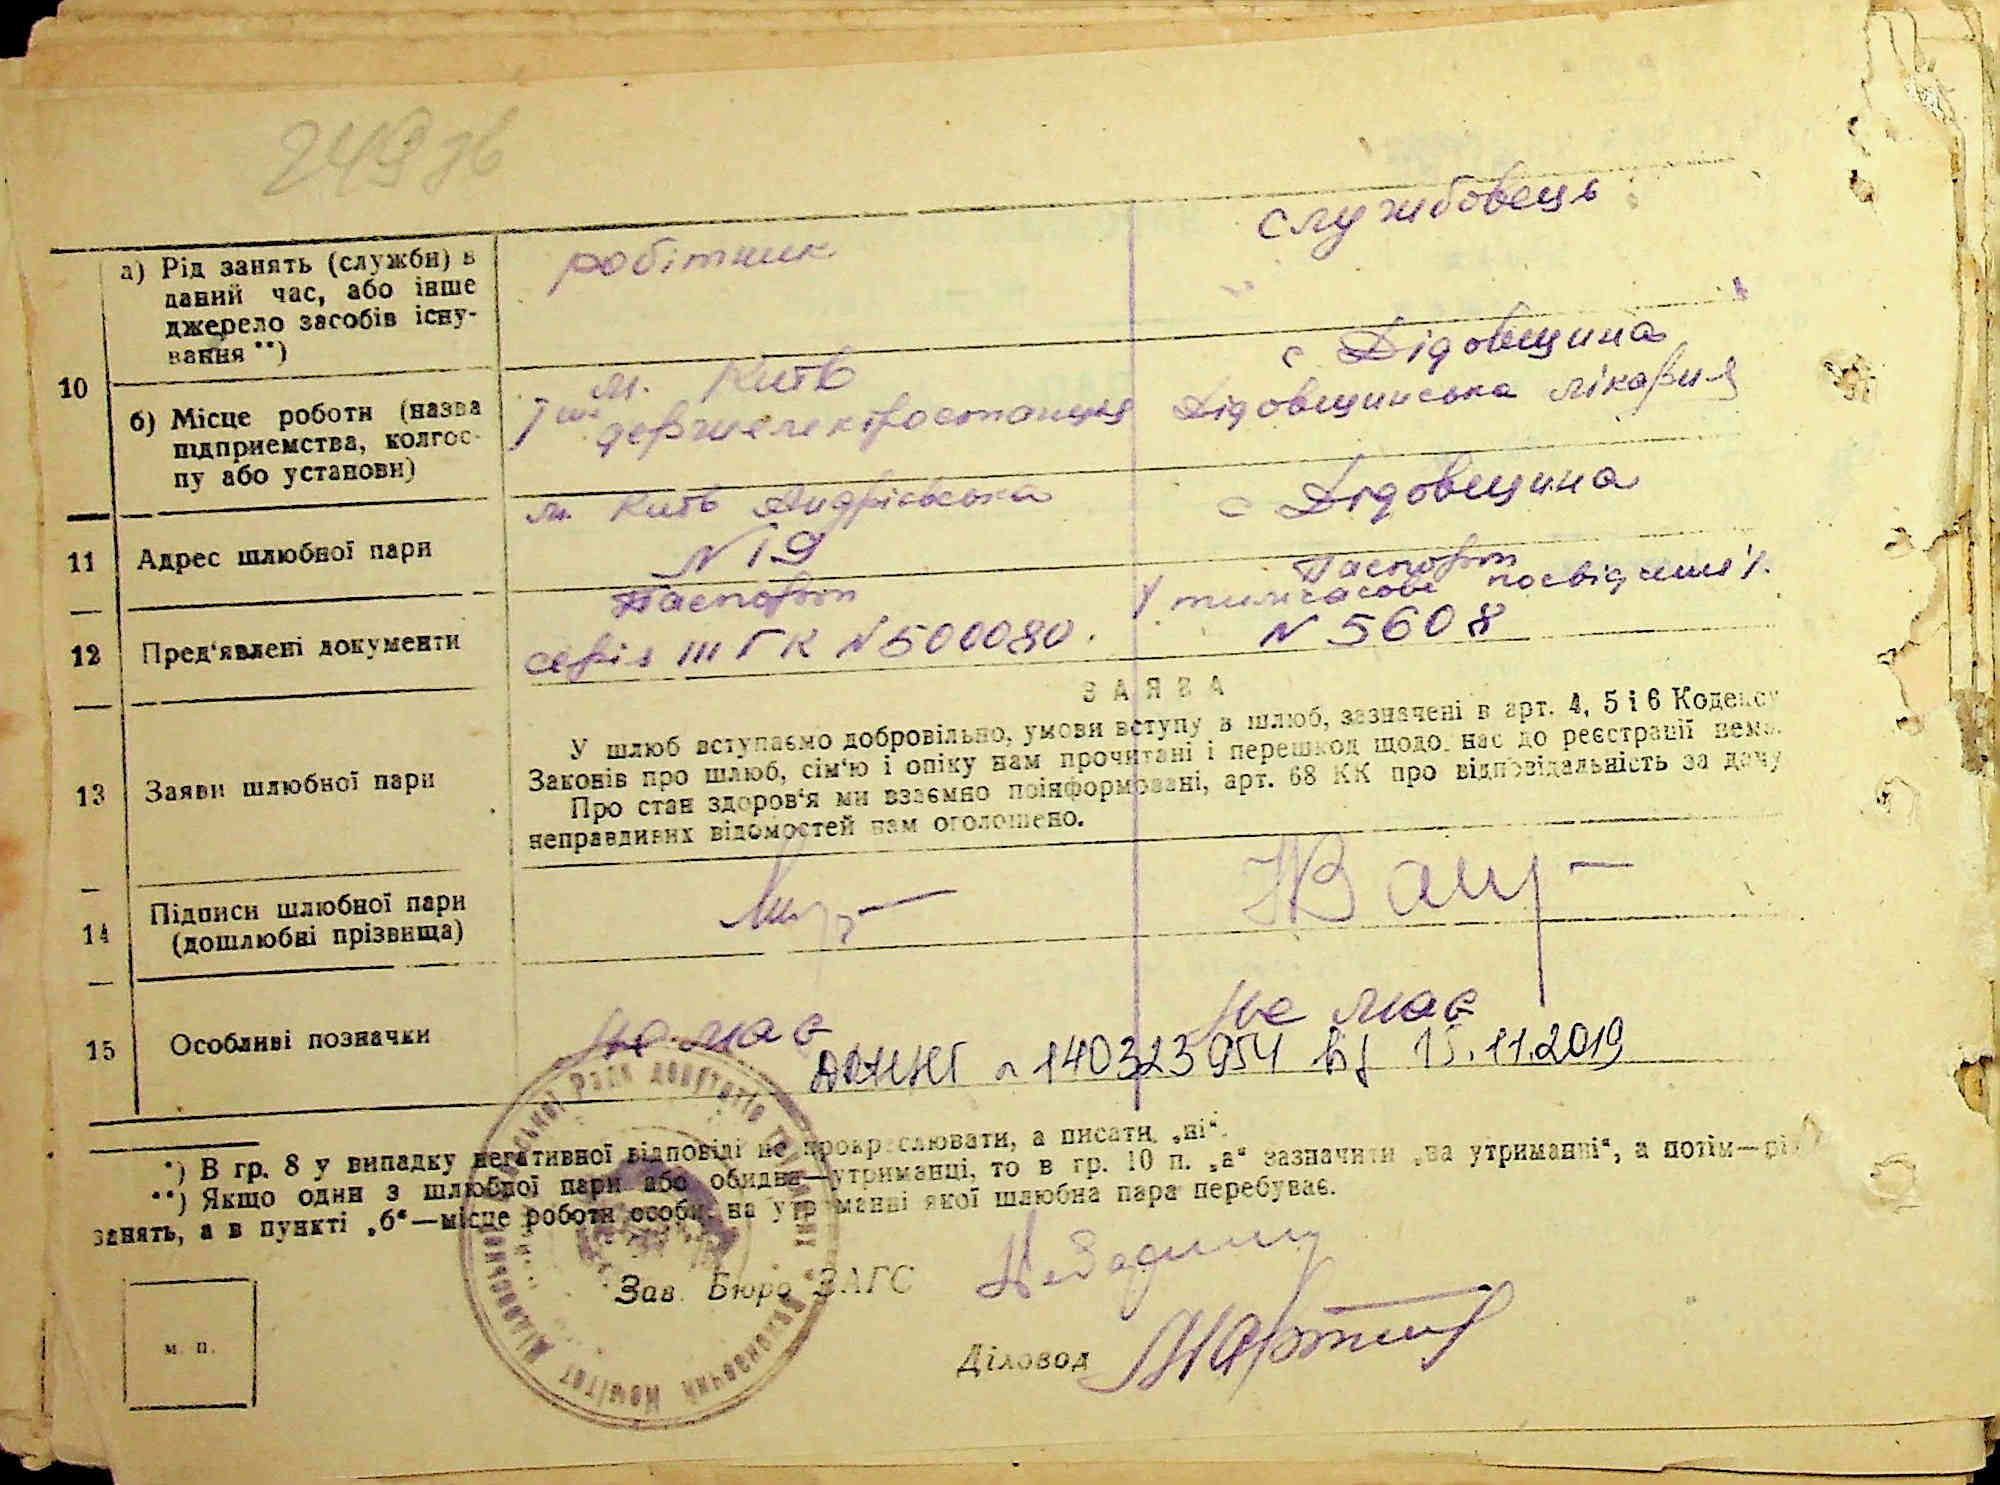 249 зв
10
а) Рід занять (служби) в
даний час, або інше
джерело засобів існу-
вання **)
робітник
службовець
б) Місце роботи (назва
підприємства, колгос-
пу або установи)
м. Київ
держелектростанція
с Дідовщина
Дідовщинська лікарня
11
Адрес шлюбної пари
м. Київ Андріївська
№ 19
с Дідовщина
12
Пред'явлені документи
Паспорт
серія III ГК № 500080.
Паспорт
тимчасове посвідчення
№ 5608
13
Заяви шлюбної пари
ЗАЯВА
У шлюб вступаємо добровільно, умови вступу в шлюб, зазначені в арт. 4, 5 і 6 Кодексу
Законів про шлюб, сім'ю і опіку нам прочитані і перешкод щодо нас до реєстрації нема.
Про стан здоров'я ми взаємно поінформовані, арт. 68 КК про відповідальність за дачу
неправдивих відомостей нам оголошено.
14
Підписи шлюбної пари
(дошлюбні прізвища)
15
Особливі позначки
Не має
Не має
140323954 від 15.11.2019
*) В гр. 8 у випадку негативної відповіді не прокреслювати, а писати „ні“.
**) Якщо один з шлюбної пари або обидва—утриманці, то в гр. 10 п. „а“ зазначити „на утриманні“, а потім—рід
занять, а в пункті „б“—місце роботи особи, на утриманні якої шлюбна пара перебуває.
м. п.
Зав. Бюро ЗАГС
Діловод
Виконавчий Комітет
Ради депутатів трудящих